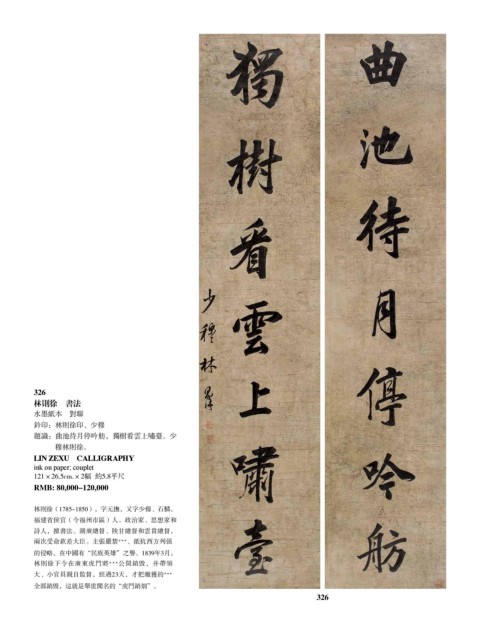 曲池待月停吟舫
獨樹看雲上嘯臺
少穆林則徐
326
林則徐　書法
水墨紙本　對聯
鈐印：林則徐印、少穆
題識：曲池待月停吟舫，獨樹看雲上嘯臺。少
穆林則徐。
LIN ZEXU　CALLIGRAPHY
ink on paper; couplet
121 × 26.5cm. × 2幅  約5.8平尺
RMB: 80,000–120,000
林則徐（1785–1850），字元撫，又字少穆、石麟，
福建省侯官（今福州市區）人。政治家、思想家和
詩人，擅書法。湖廣總督、陝甘總督和雲貴總督，
兩次受命欽差大臣。主張嚴禁***、抵抗西方列強
的侵略，在中國有“民族英雄”之譽。1839年3月，
林則徐下令在廣東虎門將***公開銷毀，并帶領
大、小官員親自監督，經過23天，才把繳獲的***
全部銷毀，這就是舉世聞名的“虎門銷烟”。
326